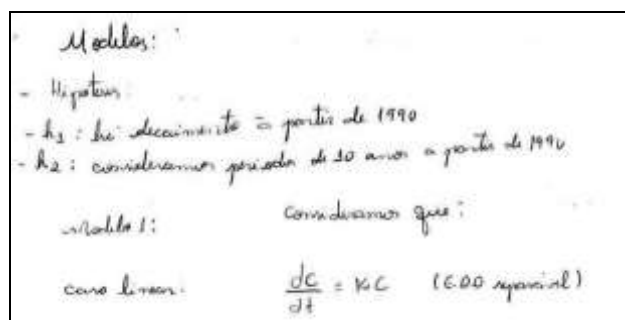 Modelos:
- Hipóteses:
- h1: há decaimento à partir de 1990
- h2: consideramos período de 10 anos a partir de 1990
Modelo 1: Consideramos que:
caso linear: dc/dt = KC (E.D.O separável)